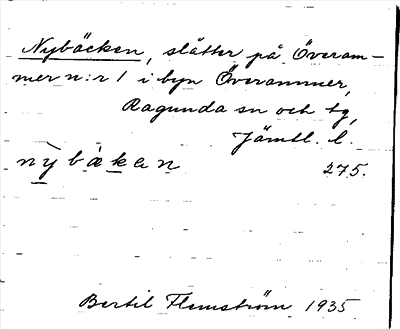 Nybäcken, slåtter på Överam-
mer n:r 1 i byn Överammer,
Ragunda sn och tg,
Jämtl. l.
nỳbä̀kan 275.
Bertil Flemström 1935